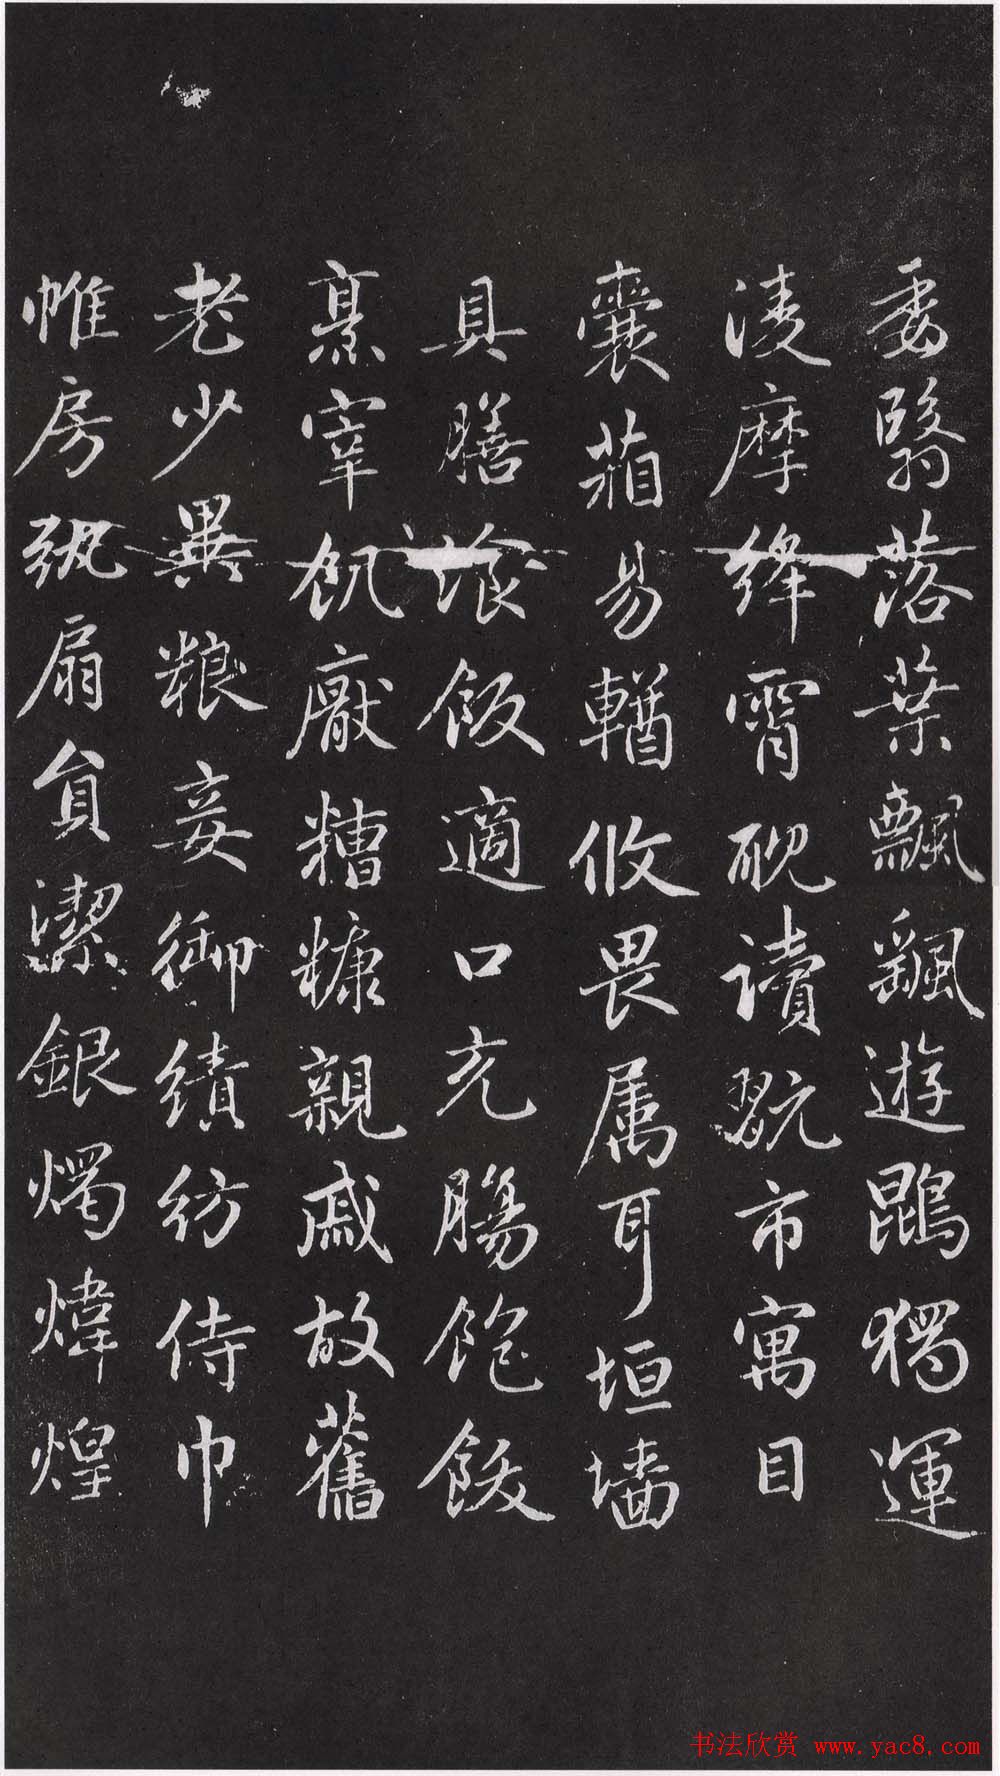 委翳落葉飄颻遊鵾獨運
淩摩絳霄耽讀翫市寓目
囊葙易輶攸畏属耳垣墻
具膳飡飯適口充腸飽飫
烹宰飢厭糟糠親戚故舊
老少異粮妾御績紡侍巾
帷房紈扇員潔銀燭煒煌
书法欣赏 www.yac8.com